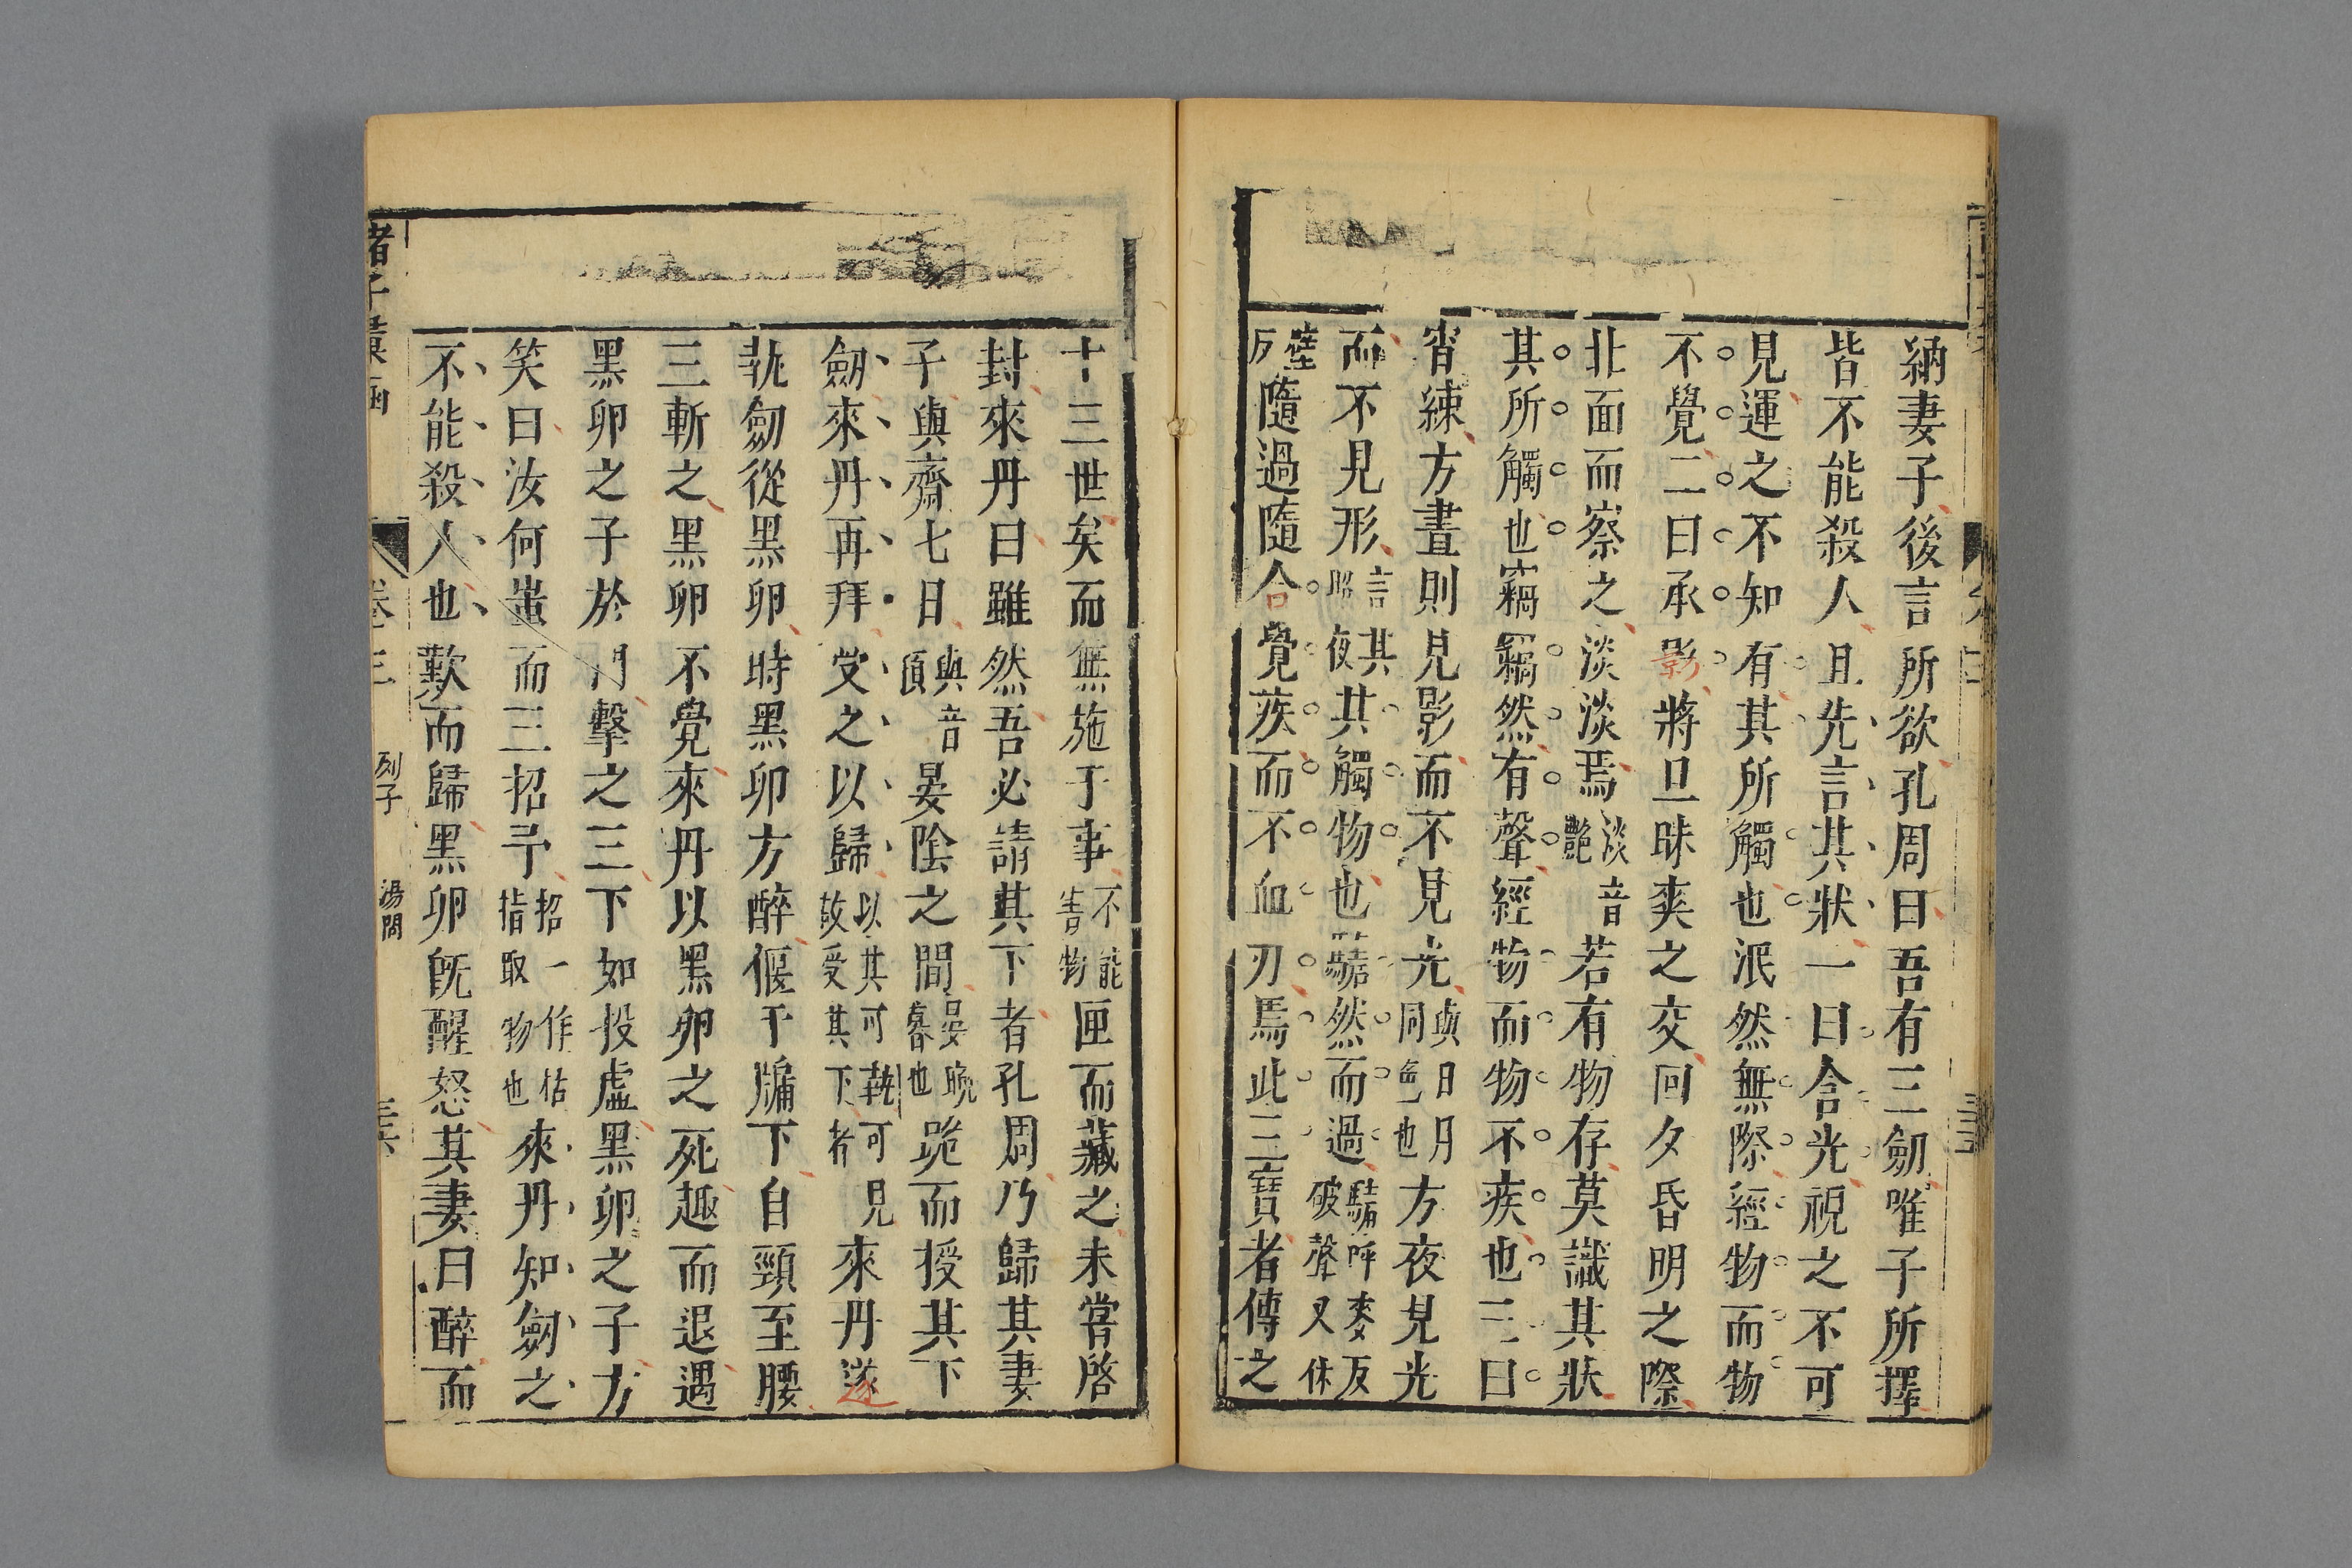 納妻子後言所欲孔周曰吾有三劒唯子所擇
皆不能殺人且先言其狀一曰含光視之不可
見運之不知有其所觸也泯然無際經物而物
不覺二曰承影將旦昧爽之交回夕昏明之際
北面而察之淡淡焉淡音豔若有物存莫識其狀
其所觸也竊竊然有聲經物而物不疾也三曰
宵練方晝則見影而不見光與日月同色也方夜見光
而不見形言其照夜其觸物也騞然而過騞呼麥反破聲又休
壁反隨過隨合覺疾而不血刃焉此三寶者傳之
十三世矣而無施于事不能害物匣而藏之未嘗啓
封來丹曰雖然吾必請其下者孔周乃歸其妻
子與齋七日與音預晏陰之間晏晚暮也跪而授其下
劒來丹再拜受之以歸以其可執可見故受其下者來丹遂
執劒從黑卵時黑卵方醉偃于牖下自頸至腰
三斬之黑卵不覺來丹以黑卵之死趣而退遇
黑卵之子於門擊之三下如投虛黑卵之子方
笑曰汝何蚩而三招予招一作枯指取物也來丹知劒之
不能殺人也歎而歸黑卵旣醒怒其妻曰醉而
諸子彙函
卷三
列子
湯問
三六